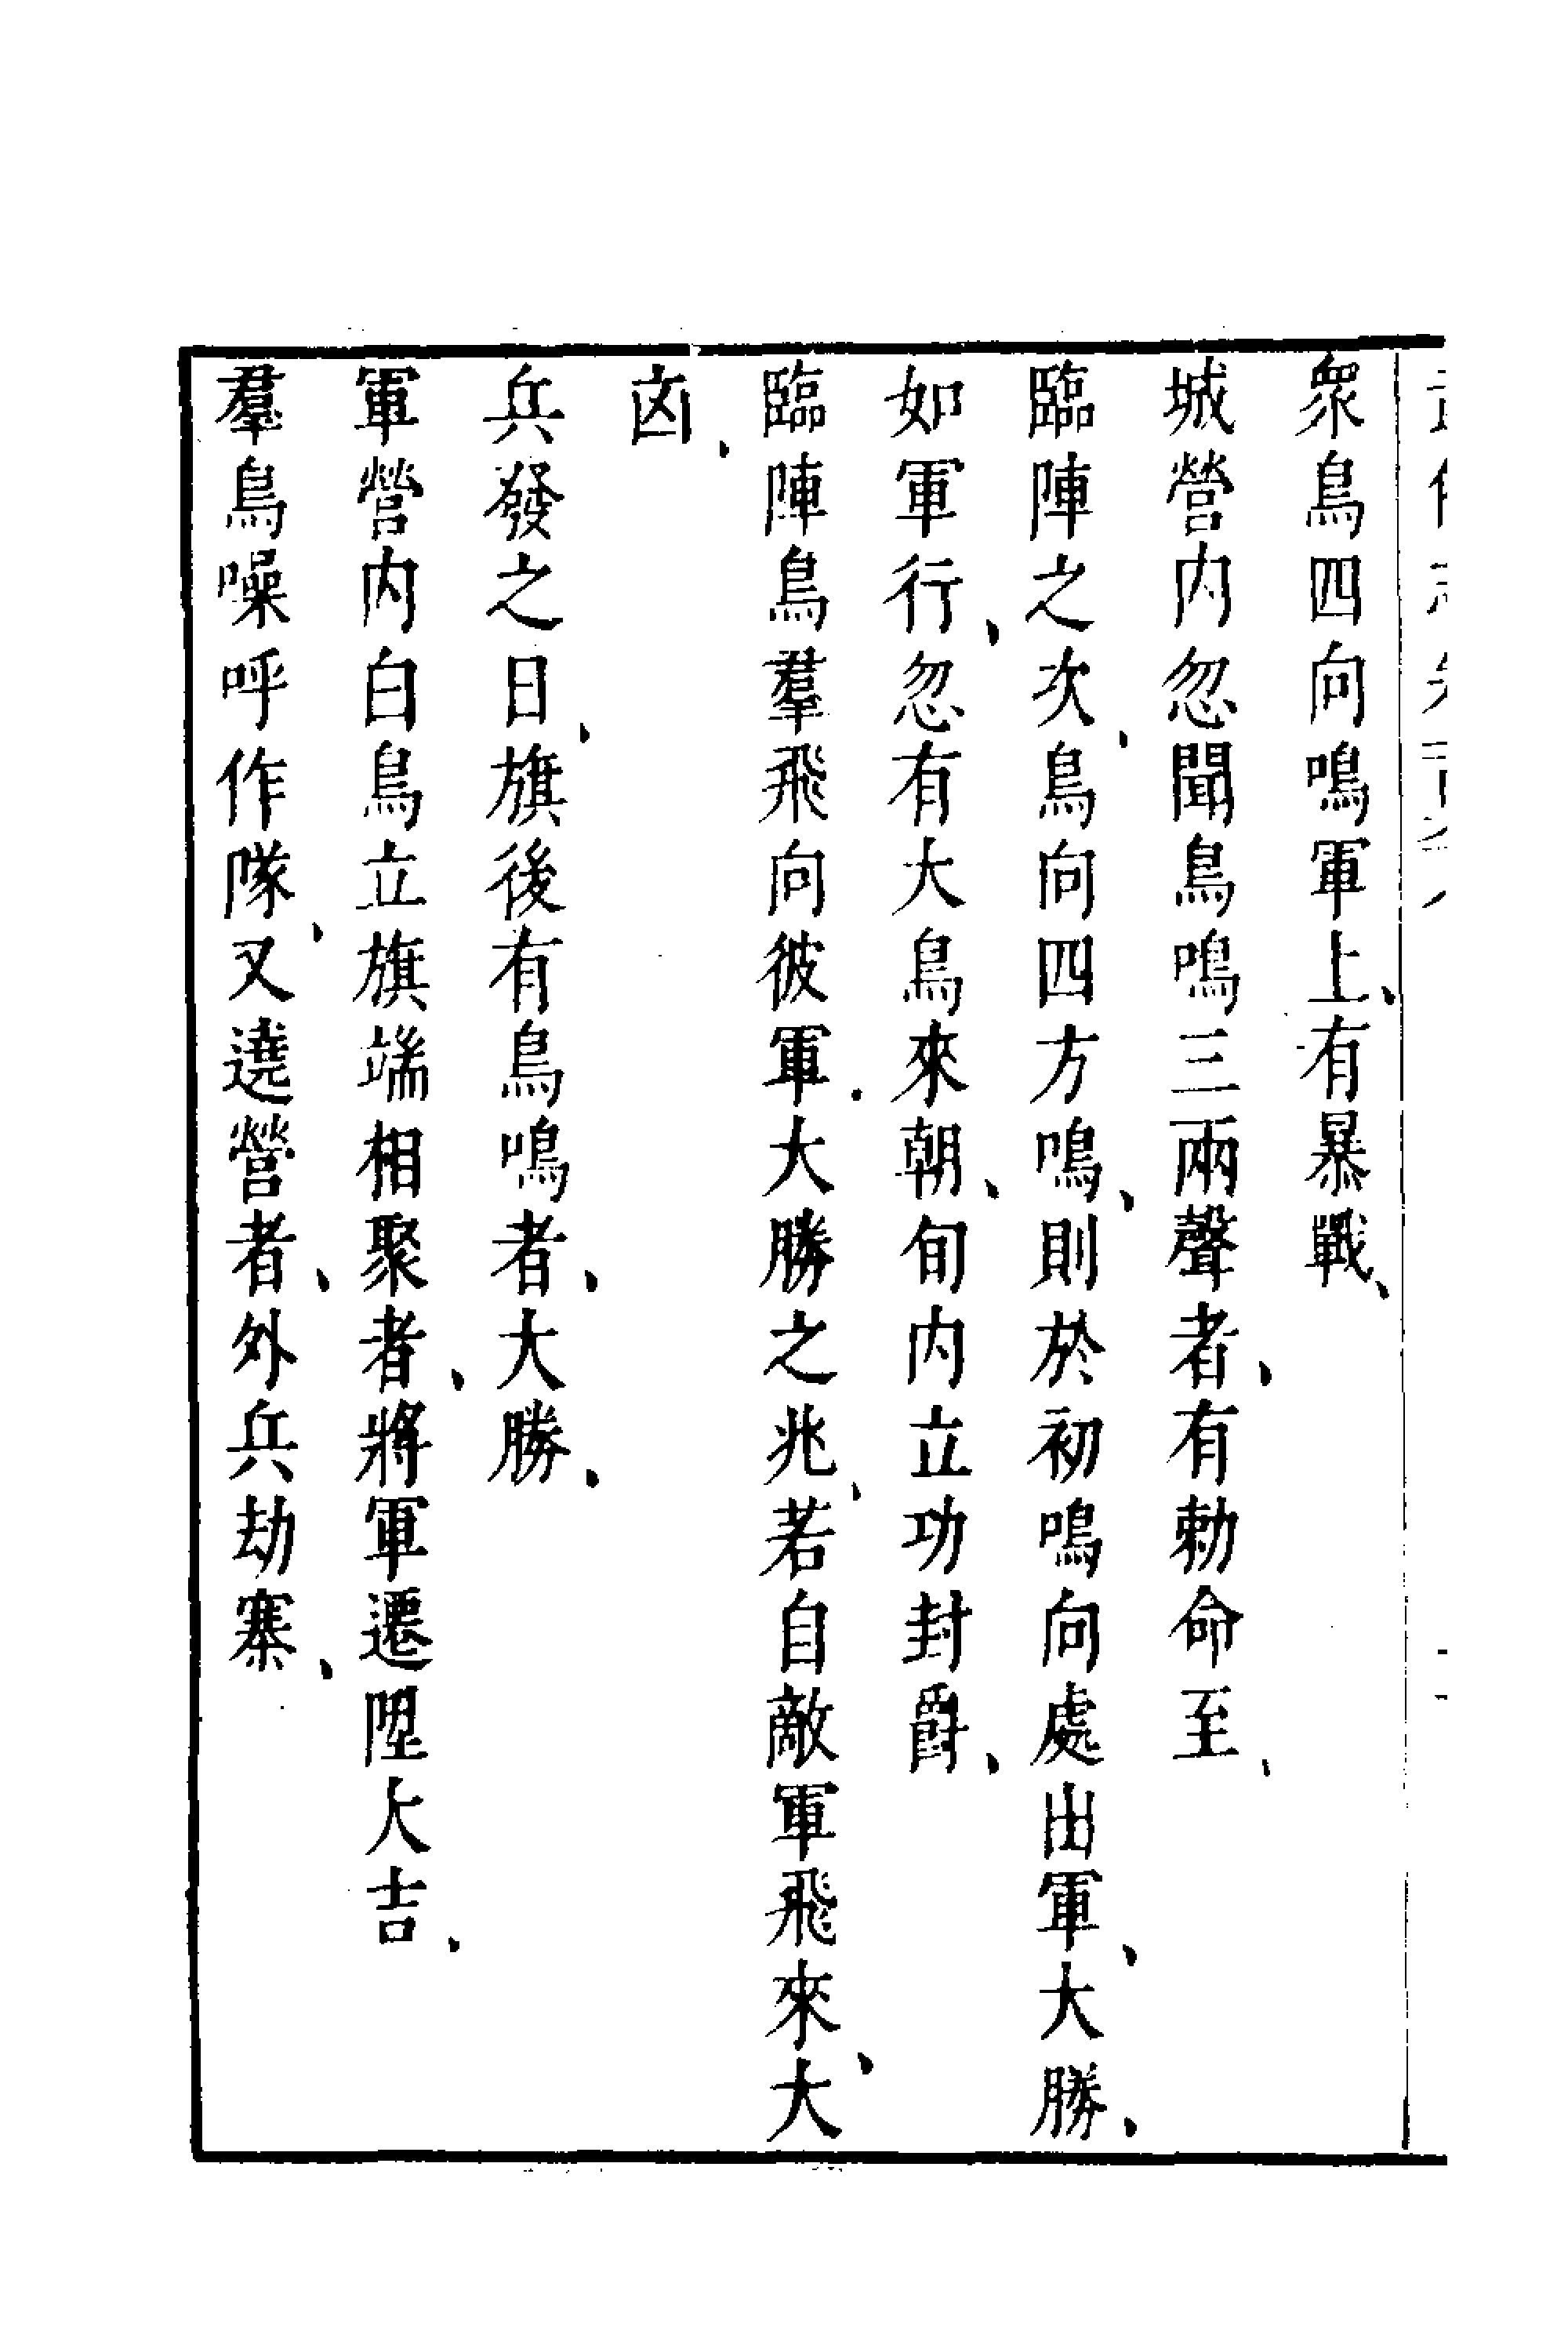 衆鳥四向鳴軍上、有暴戰、
城營内忽聞鳥鳴三兩聲者、有勅命至、
臨陣之次、鳥向四方鳴、則於初鳴向處出軍、大勝、
如軍行、忽有大鳥來朝、旬内立功封爵、
臨陣鳥羣飛向彼軍、大勝之兆、若自敵軍飛來、大
凶、
兵發之日、旗後有鳥鳴者、大勝、
軍營内白鳥立旗端相聚者、將軍遷陞大吉、
羣鳥噪呼作隊、又遶營者、外兵劫寨、